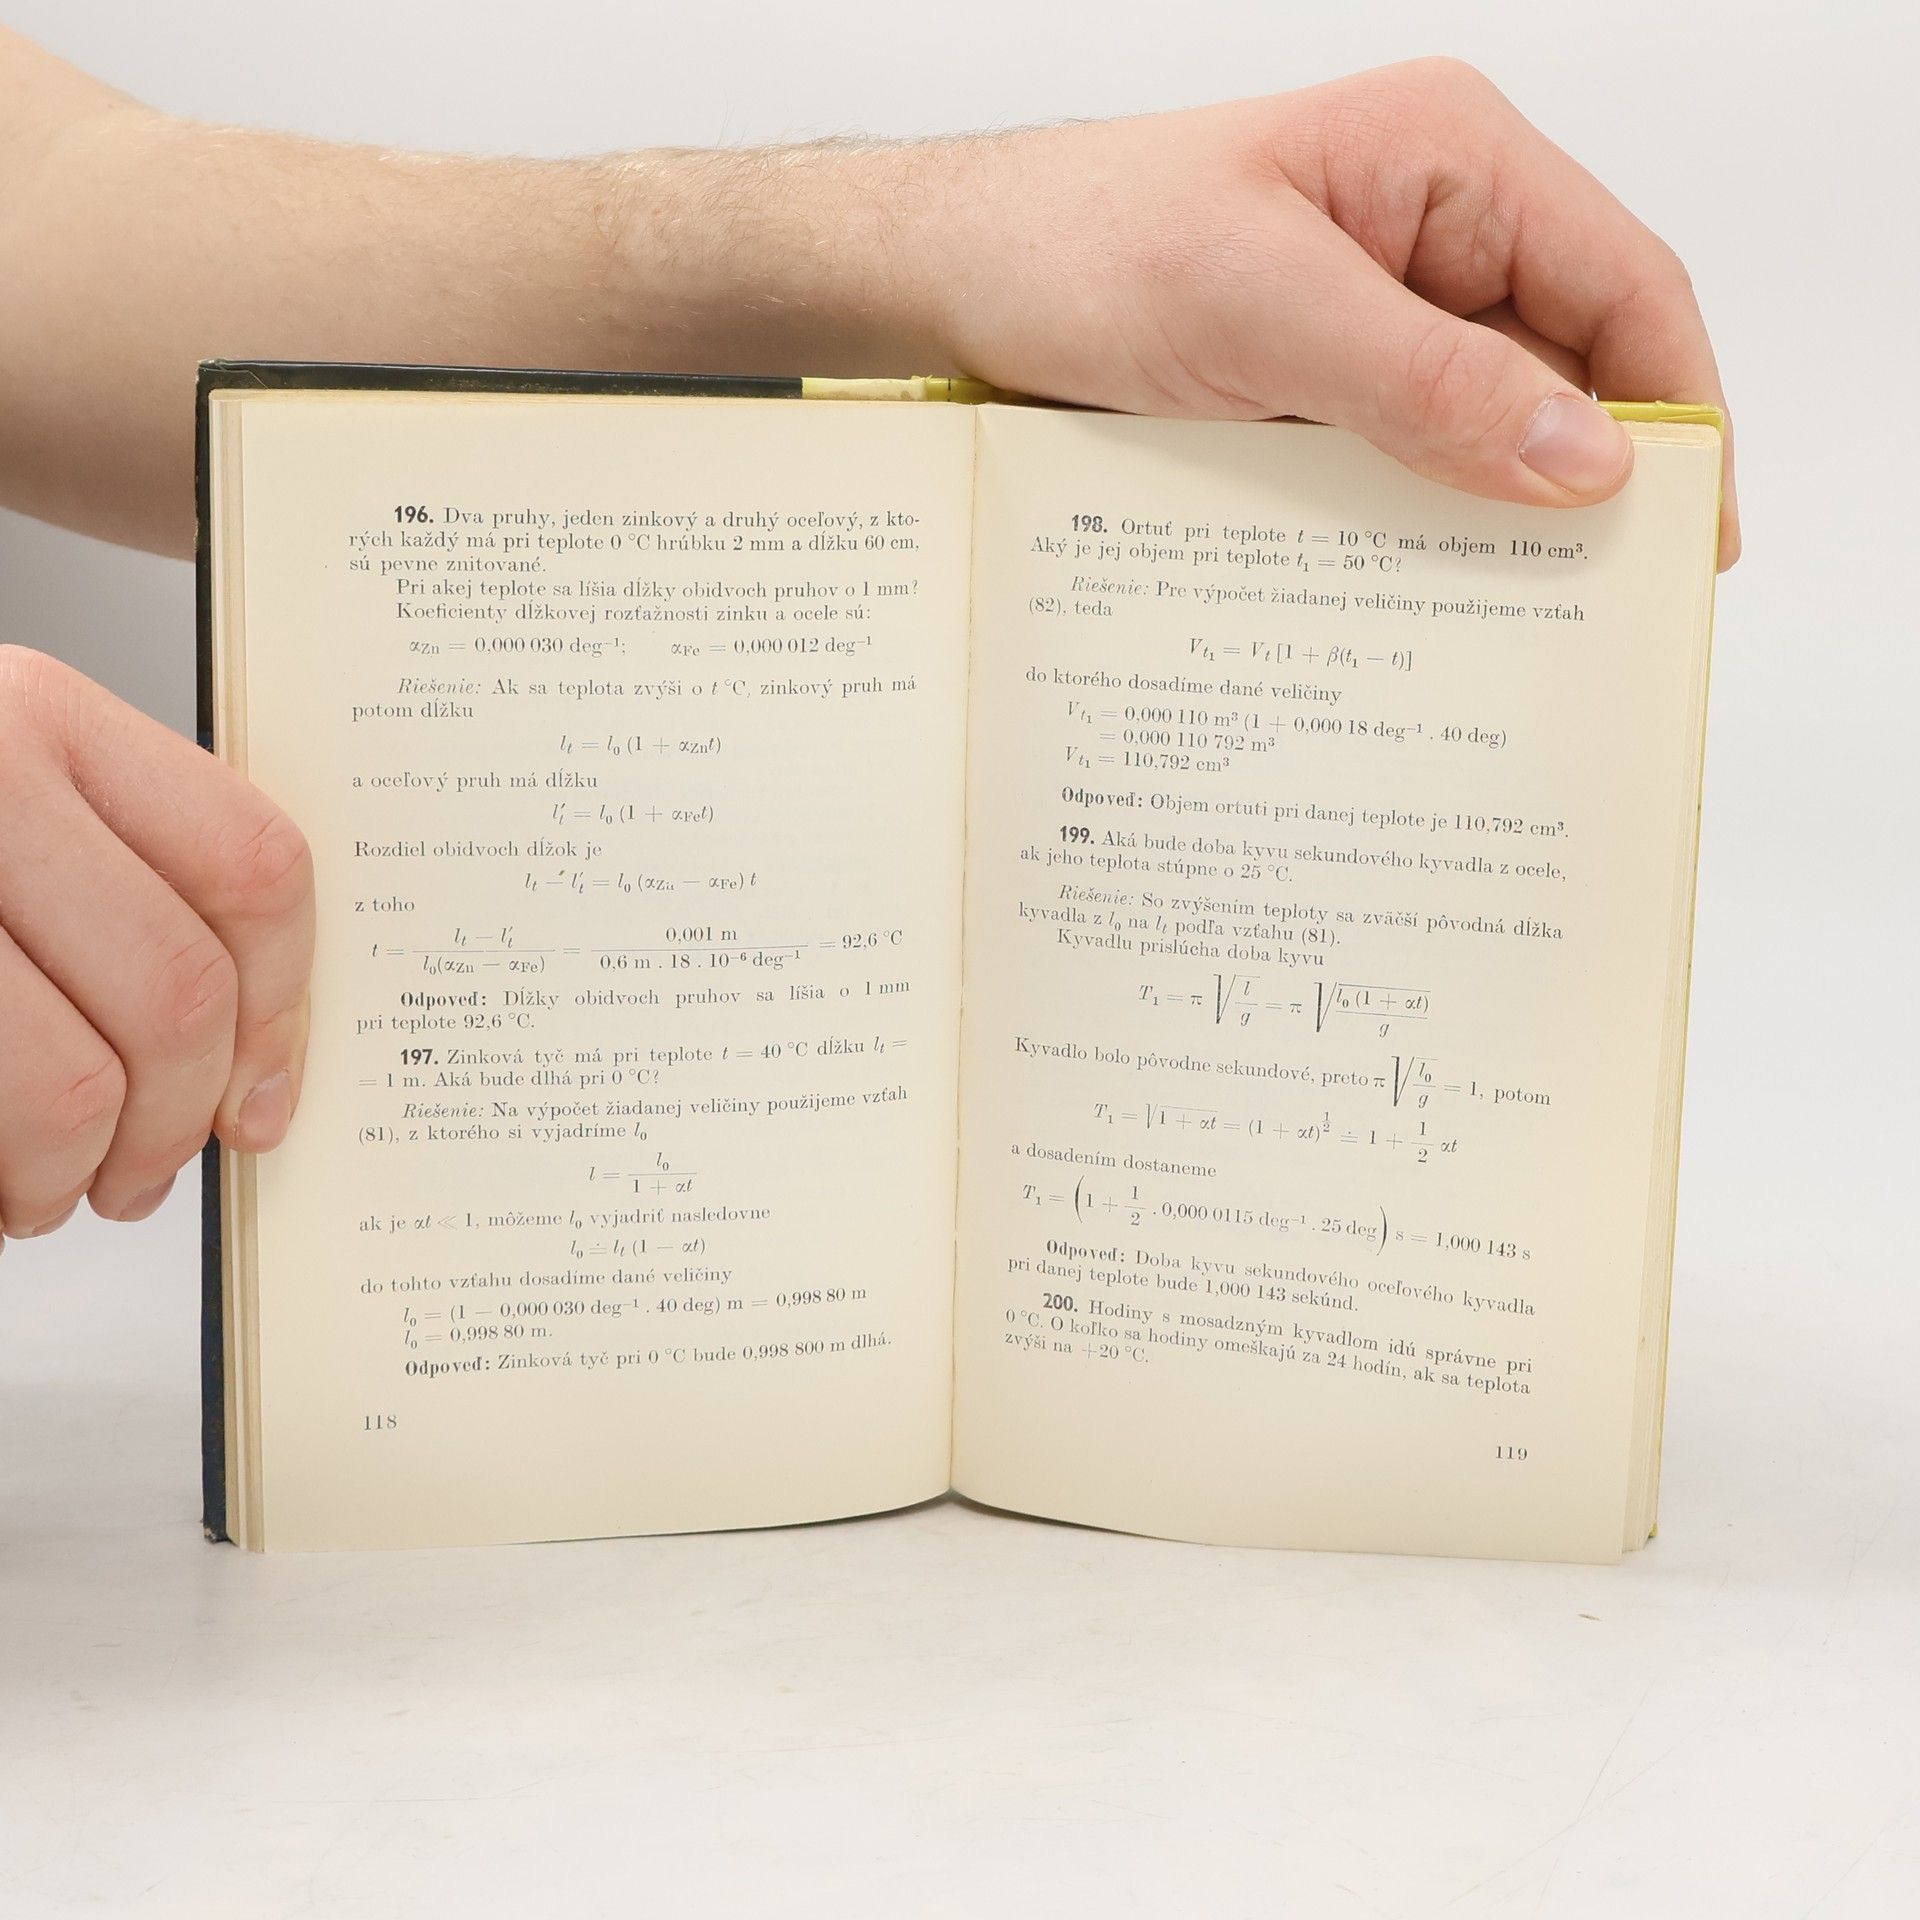 196. Dva pruhy, jeden zinkový a druhý oceľový, z kto-
rých každý má pri teplote 0 °C hrúbku 2 mm a dĺžku 60 cm,
sú pevne znitované.
Pri akej teplote sa líšia dĺžky obidvoch pruhov o 1 mm?
Koeficienty dĺžkovej rozťažnosti zinku a ocele sú:
αZn = 0,000 030 deg⁻¹; αFe = 0,000 012 deg⁻¹
Riešenie: Ak sa teplota zvýši o t °C, zinkový pruh má
potom dĺžku
lₜ = l₀ (1 + αZnt)
a oceľový pruh má dĺžku
l′ₜ = l₀ (1 + αFet)
Rozdiel obidvoch dĺžok je
lₜ − l′ₜ = l₀ (αZn − αFe) t
z toho
t = (lₜ − l′ₜ) / (l₀(αZn − αFe)) = (0,001 m) / (0,6 m . 18 . 10⁻⁶ deg⁻¹) = 92,6 °C
Odpoveď: Dĺžky obidvoch pruhov sa líšia o 1 mm
pri teplote 92,6 °C.
197. Zinková tyč má pri teplote t = 40 °C dĺžku lₜ =
= 1 m. Aká bude dlhá pri 0 °C?
Riešenie: Na výpočet žiadanej veličiny použijeme vzťah
(81), z ktorého si vyjadríme l₀
l = l₀ / (1 + αt)
ak je αt ≪ 1, môžeme l₀ vyjadriť nasledovne
l₀ ≐ lₜ (1 − αt)
do tohto vzťahu dosadíme dané veličiny
l₀ = (1 − 0,000 030 deg⁻¹ . 40 deg) m = 0,998 80 m
l₀ = 0,998 80 m.
Odpoveď: Zinková tyč pri 0 °C bude 0,998 800 m dlhá.
118
198. Ortuť pri teplote t = 10 °C má objem 110 cm³.
Aký je jej objem pri teplote t₁ = 50 °C?
Riešenie: Pre výpočet žiadanej veličiny použijeme vzťah
(82), teda
Vt₁ = Vt [1 + β(t₁ − t)]
do ktorého dosadíme dané veličiny
Vt₁ = 0,000 110 m³ (1 + 0,000 18 deg⁻¹ . 40 deg)
= 0,000 110 792 m³
Vt₁ = 110,792 cm³
Odpoveď: Objem ortuti pri danej teplote je 110,792 cm³.
199. Aká bude doba kyvu sekundového kyvadla z ocele,
ak jeho teplota stúpne o 25 °C.
Riešenie: So zvýšením teploty sa zväčší pôvodná dĺžka
kyvadla z l₀ na lₜ podľa vzťahu (81).
Kyvadlu prislúcha doba kyvu
T₁ = π √(l/g) = π √(l₀ (1 + αt)/g)
Kyvadlo bolo pôvodne sekundové, preto π √(l₀/g) = 1, potom
T₁ = √(1 + αt) = (1 + αt)^(1/2) ≐ 1 + 1/2 αt
a dosadením dostaneme
T₁ = (1 + 1/2 . 0,000 0115 deg⁻¹ . 25 deg) s = 1,000 143 s
Odpoveď: Doba kyvu sekundového oceľového kyvadla
pri danej teplote bude 1,000 143 sekúnd.
200. Hodiny s mosadzným kyvadlom idú správne pri
0 °C. O koľko sa hodiny omeškajú za 24 hodín, ak sa teplota
zvýši na +20 °C.
119